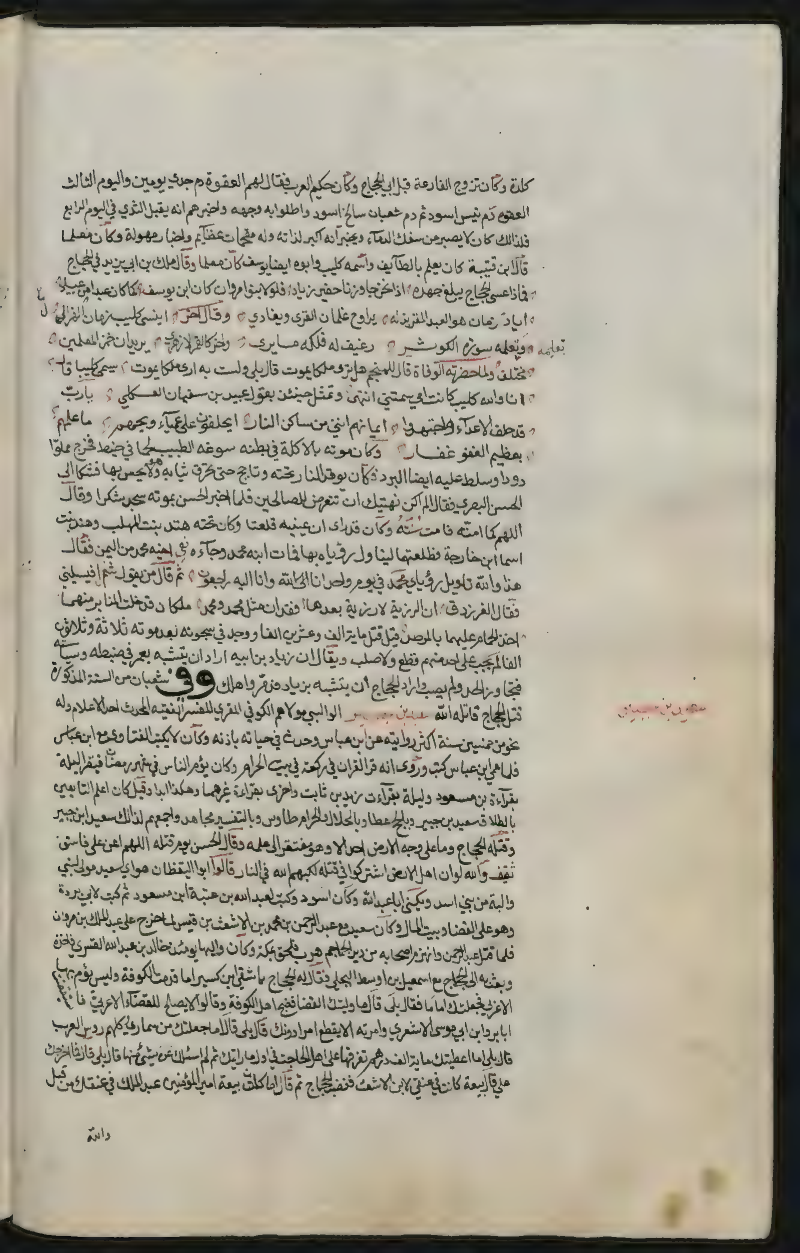 كلدة وكان تزوج الفارعة قبل ابي الحجاج وكان حكيم العرب فقال لهم العقوة دم جدي يومين واليوم الثالث
العقوه دم تيس اسود ثم دم ثعبان سالخ اسود واطلوا به وجهه واخبرهم انه يقبل الثدي في اليوم الرابع
فلذلك كان لا يصبر من سفك الدماء ويخبر انه اكبر لذاته وله مقحمات عظايم واخبار مهولة وكان معلما
قال ابن قتيبة كان يعلم بالطايف واسمه كليب وابوه ايضا يوسف كان معلما وقال ملك بن
فماذا عسى الحجاج يبلغ جهده اذا نحن جاوزنا حفير زياد فلولا بنو مروان كان ابن يوسف كما كان عبدا من عبيد
اياد زمان هو العبد المقر بذله يراوح غلمان القرى ويغادي وقال اخر اينسى كليب زمان الهزال
تعلمه وتعلمه سورة الكوثر رغيف له فلكه ما يرى واخر كالقمر الازهر يريد ان خبز المعلمين
مختلف ولما حضرته الوفاة قال للمنجم هل ترى ملكا يموت قال بلى ولست به ارى ملكا يموت يسمى كليبا قال
انا والله كليب كانت امي سمتني انتهى وتمثل حينئذ بقول عبيد بن سفيان العكلي يا رب
قد حلف الاعداء واجتهدوا ايمانهم انني من ساكن النار ايحلفون على عمياء ويحهم ما علمهم
بعظيم العفو غفار وكان موته بالاكلة في بطنه سوغه الطبيب لحما في خيط فخرج مملوا
دودا وسلط عليه ايضا البرد فكان يوقد النار تحته وتاجج حتى تحرق ثيابه وهو لا يحس بها فشكا الى
الحسن البصري فقال الم اكن نهيتك ان تتعرض للصالحين فلما اخبر الحسن بموته سجد شكرا وقال
اللهم كما امته فامت سنته وكان قد راى ان عينيه قلعتا وكان تحته هند بنت المهلب وهند بنت
اسما ابن خارجة فطلقهما ليتاول رؤياه بهما فمات ابنه محمد وجاءه نعي اخيه محمد من اليمن فقال
هذا والله تاويل رؤياي محمد في يوم واحد انا لله وانا اليه راجعون ثم قال من يقول شعرا فيسليني
فقال الفرزدق ان الرزية لا رزية بعدها فقدان مثل محمد ومحمد ملكان قد خلت المنابر منهما
اخذ الحمام عليهما بالمرصد قيل قتل ماية الف وعشرين الفا ووجد في سجونه بعد موته ثلاثة وثلاثون
الفا لم يجب على احد منهم قطع ولا صلب ويقال ان زياد بن ابيه اراد ان يتشبه بعمر في ضبطه وسياسته
فتجاوز الحد ولم يصب واراد الحجاج ان يتشبه بزياد فدمر واهلك وفي شعبان من السنة المذكورة
قتل الحجاج قاتله الله سعيد بن جبير الوالبي مولاهم الكوفي المقري المفسر الفقيه المحدث احد الاعلام وله
سعيد بن جبير
نحو من خمسين سنة اكثر روايته عن ابن عباس وحدث في حياته باذنه وكان لا يكتب الفتاوى مع ابن عباس
فلما عمي ابن عباس كتب وروى انه قرا القران في ركعة في بيت الحرام وكان يؤم الناس في شهر رمضان فيقرا ليلة
بقراءة بن مسعود وليلة بقراءت زيد بن ثابت واخرى بقراءة غيرهما وهكذا ابدا وقيل كان اعلم التابعين
بالطلاق سعيد بن جبير وبالحج عطا وبالحلال والحرام طاوس وبالتفسير مجاهد واجمعهم لذلك سعيد ابن جبير
وقتله الحجاج وما على وجه الارض احد الا وهو مفتقر الى علمه وقال الحسن يوم قتله اللهم اعن على فاسق
ثقيف والله لو ان اهل الارض اشتركوا في قتله لكبهم الله في النار قال ابو اليقظان هو اي سعيد مولى لبني
والبة من بني اسد ويكنى ابا عبد الله وكان اسود وكتب لعبد الله بن عتبة ابن مسعود ثم كتب لابي بردة
وهو على القضا وبيت المال وكان سعيد مع عبد الرحمن بن محمد بن الاشعث بن قيس لما خرج على عبد الملك بن مروان
فلما قتل عبد الرحمن وانهزم اصحابه من دير الجماجم هرب فلحق بمكة وكان واليها يومئذ خالد بن عبد الله القسري فاخذه
وبعث به الى الحجاج مع اسمعيل بن اوسط البجلي فقال له الحجاج يا شقي ابن كسير اما قدمت الكوفة وليس يؤم بها
الا عربي فجعلتك اماما فقال بلى قال اما وليتك القضا فضج اهل الكوفة وقالوا لا يصلح للقضاء الا عربي فاستقضيت
ابا بردة ابن ابي موسى الاشعري وامرته الا يقطع امرا دونك قال بلى قال اما جعلتك من سماري وكلهم روس العرب
قال بلى اما اعطيتك ماية الف درهم تفرقها على اهل الحاجة في اول ما رايتك ثم لم اسئلك عن شيء منها قال بلى قال فما اخرجك
علي قال بيعة كانت في عنقي لابن الاشعث فغضب الحجاج ثم قال اما كانت بيعة امير المؤمنين عبد الملك في عنقك من قبل
والله